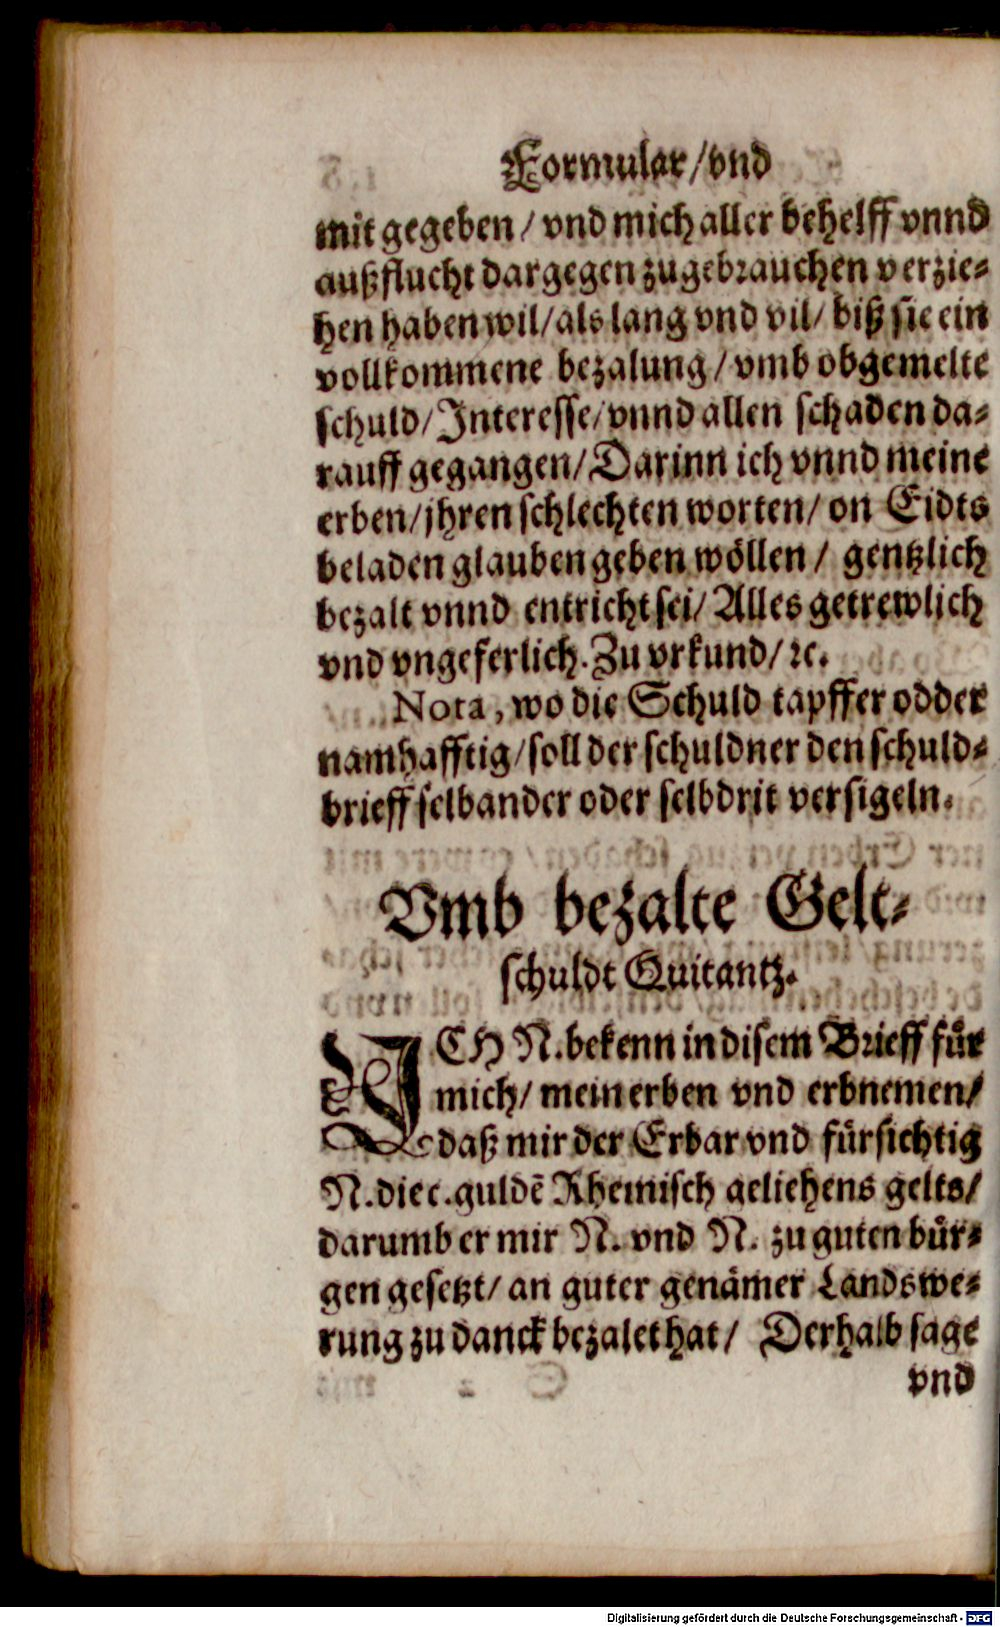 Formular/vnd
mit gegeben/ vnd mich aller behelff vnnd
außflucht dargegen zugebrauchen verzie-
hen haben wil/als lang vnd vil/ biß sie ein
vollkommene bezalung/ vmb obgemelte
schuld/Interesse/vnnd allen schaden da-
rauff gegangen/Darinn ich vnnd meine
erben/jhren schlechten worten/ on Eidts
beladen glauben geben wöllen/ gentzlich
bezalt vnnd entricht sei/Alles getrewlich
vnd vngeferlich. Zu vrkund/ ꝛc.
Nota, wo die Schuld tapffer odder
namhafftig/soll der schuldner den schuld-
brieff selbander oder selbdrit versigeln.
Vmb bezalte Gelt-
schuldt Quitantz.
ICH N. bekenn in disem Brieff für
mich/ mein erben vnd erbnemen/
daß mir der Erbar vnd fürsichtig
N. die c. guldē Rheinisch geliehens gelts/
darumb er mir N. vnd N. zu guten bür-
gen gesetzt/ an guter genämer Landswe-
rung zu danck bezalet hat/ Derhalb sage
vnd
Digitalisierung gefördert durch die Deutsche Forschungsgemeinschaft - DFG